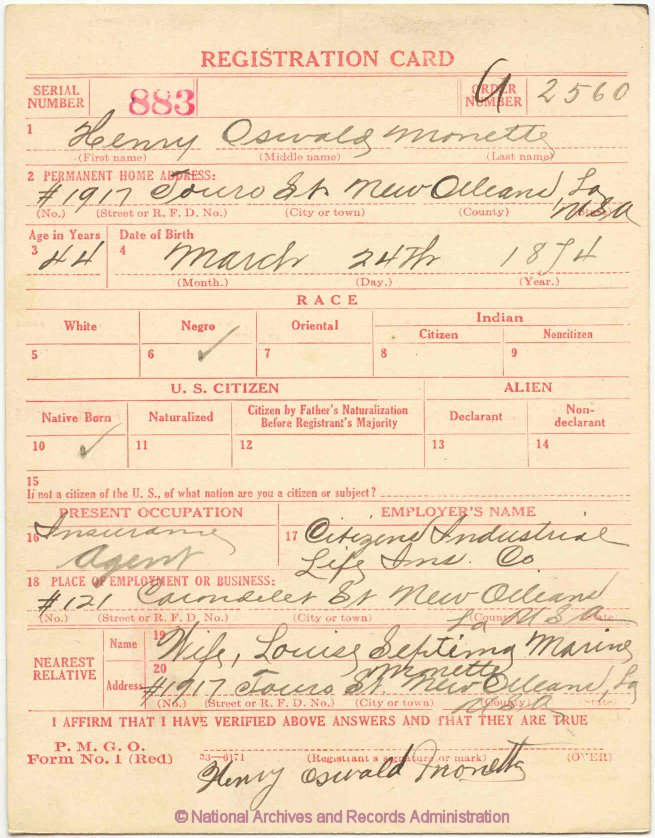 REGISTRATION CARD
SERIAL NUMBER 883 ORDER NUMBER 2560
1 Henry Oswald Monette
(First name) (Middle name) (Last name)
2 PERMANENT HOME ADDRESS:
#1917 Touro St. New Orleans, La
(No.) (Street or R. F. D. No.) (City or town) (County) (State) USA
Age in Years Date of Birth
3 44 4 March 24th 1874
(Month.) (Day.) (Year.)
RACE
White Negro Oriental Indian
Citizen Noncitizen
5 6 ✓ 7 8 9
U. S. CITIZEN ALIEN
Native Born Naturalized Citizen by Father's Naturalization Before Registrant's Majority Declarant Non-declarant
10 ✓ 11 12 13 14
15
If not a citizen of the U. S., of what nation are you a citizen or subject?
PRESENT OCCUPATION EMPLOYER'S NAME
16 Insurance 17 Citizens Industrial
Agent Life Ins. Co
18 PLACE OF EMPLOYMENT OR BUSINESS:
#121 Carondelet St New Orleans
(No.) (Street or R. F. D. No.) (City or town) (County) La USA State
NEAREST RELATIVE Name 19 Wife, Louise Septima Marine
Monette
Address 20 #1917 Touro St. New Orleans, La
(No.) (Street or R. F. D. No.) (City or town) (County) (State) USA
I AFFIRM THAT I HAVE VERIFIED ABOVE ANSWERS AND THAT THEY ARE TRUE
P. M. G. O.
Form No. 1 (Red) 23—6171 (Registrant's signature or mark) (OVER)
Henry Oswald Monette
© National Archives and Records Administration